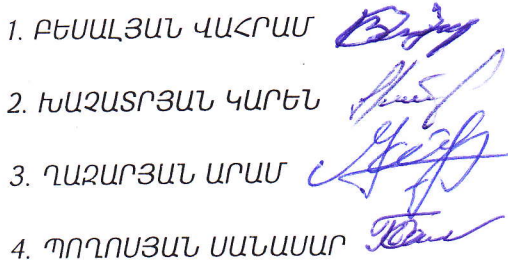 1. ԲԵՍԱԼՅԱՆ ՎԱՀՐԱՄ
2. ԽԱՉԱՏՐՅԱՆ ԿԱՐԵՆ
3. ՂԱԶԱՐՅԱՆ ԱՐԱՄ
4. ՊՈՂՈՍՅԱՆ ՍԱՆԱՍԱՐ